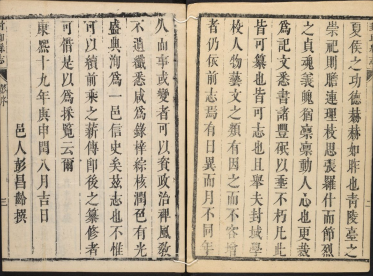 夏侯之功德赫赫如昨也青陵臺之
崇祀則贍連理枝思張羅什而節烈
之貞魂義魄猶凜凜動人心也更裁
爲記文悉書諸豐碑以垂不朽凡此
皆可纂也皆可志也且舉夫封域學
校人物藝文之類有因之而不容增
者仍依前志有日異而月不同年
久而事或變者可以資政治禪風敎
不遺纖悉咸爲錄梓綜核潤色有光
盛典洵爲一邑信史矣茲志也不惟
可以續前乘之薪傳卽後之纂修者
可借是以爲採覽云爾
康熙十九年歲庚申閏八月吉日
邑人彭昌齡撰